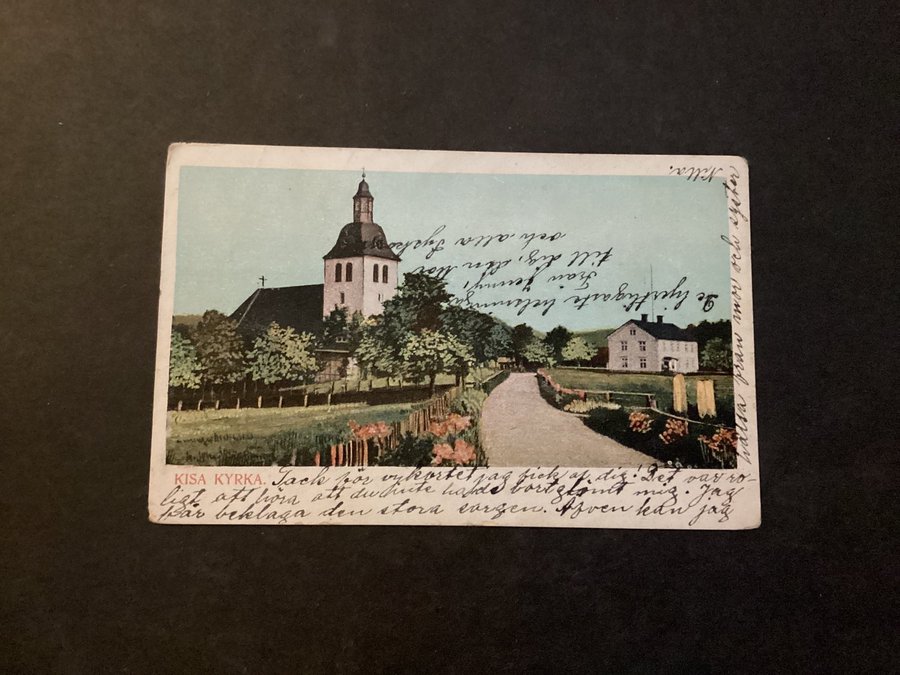 KISA KYRKA.
Tack för vykortet jag fick af dig! Det var ro-
ligt att höra att du inte hade bortglömt mig. Jag
får beklaga den stora sorgen. Äfven kan jag
hälsa från mor och syster
Nilla.
De hjertligaste helsningar
från Jenny,
till dig, din
och alla